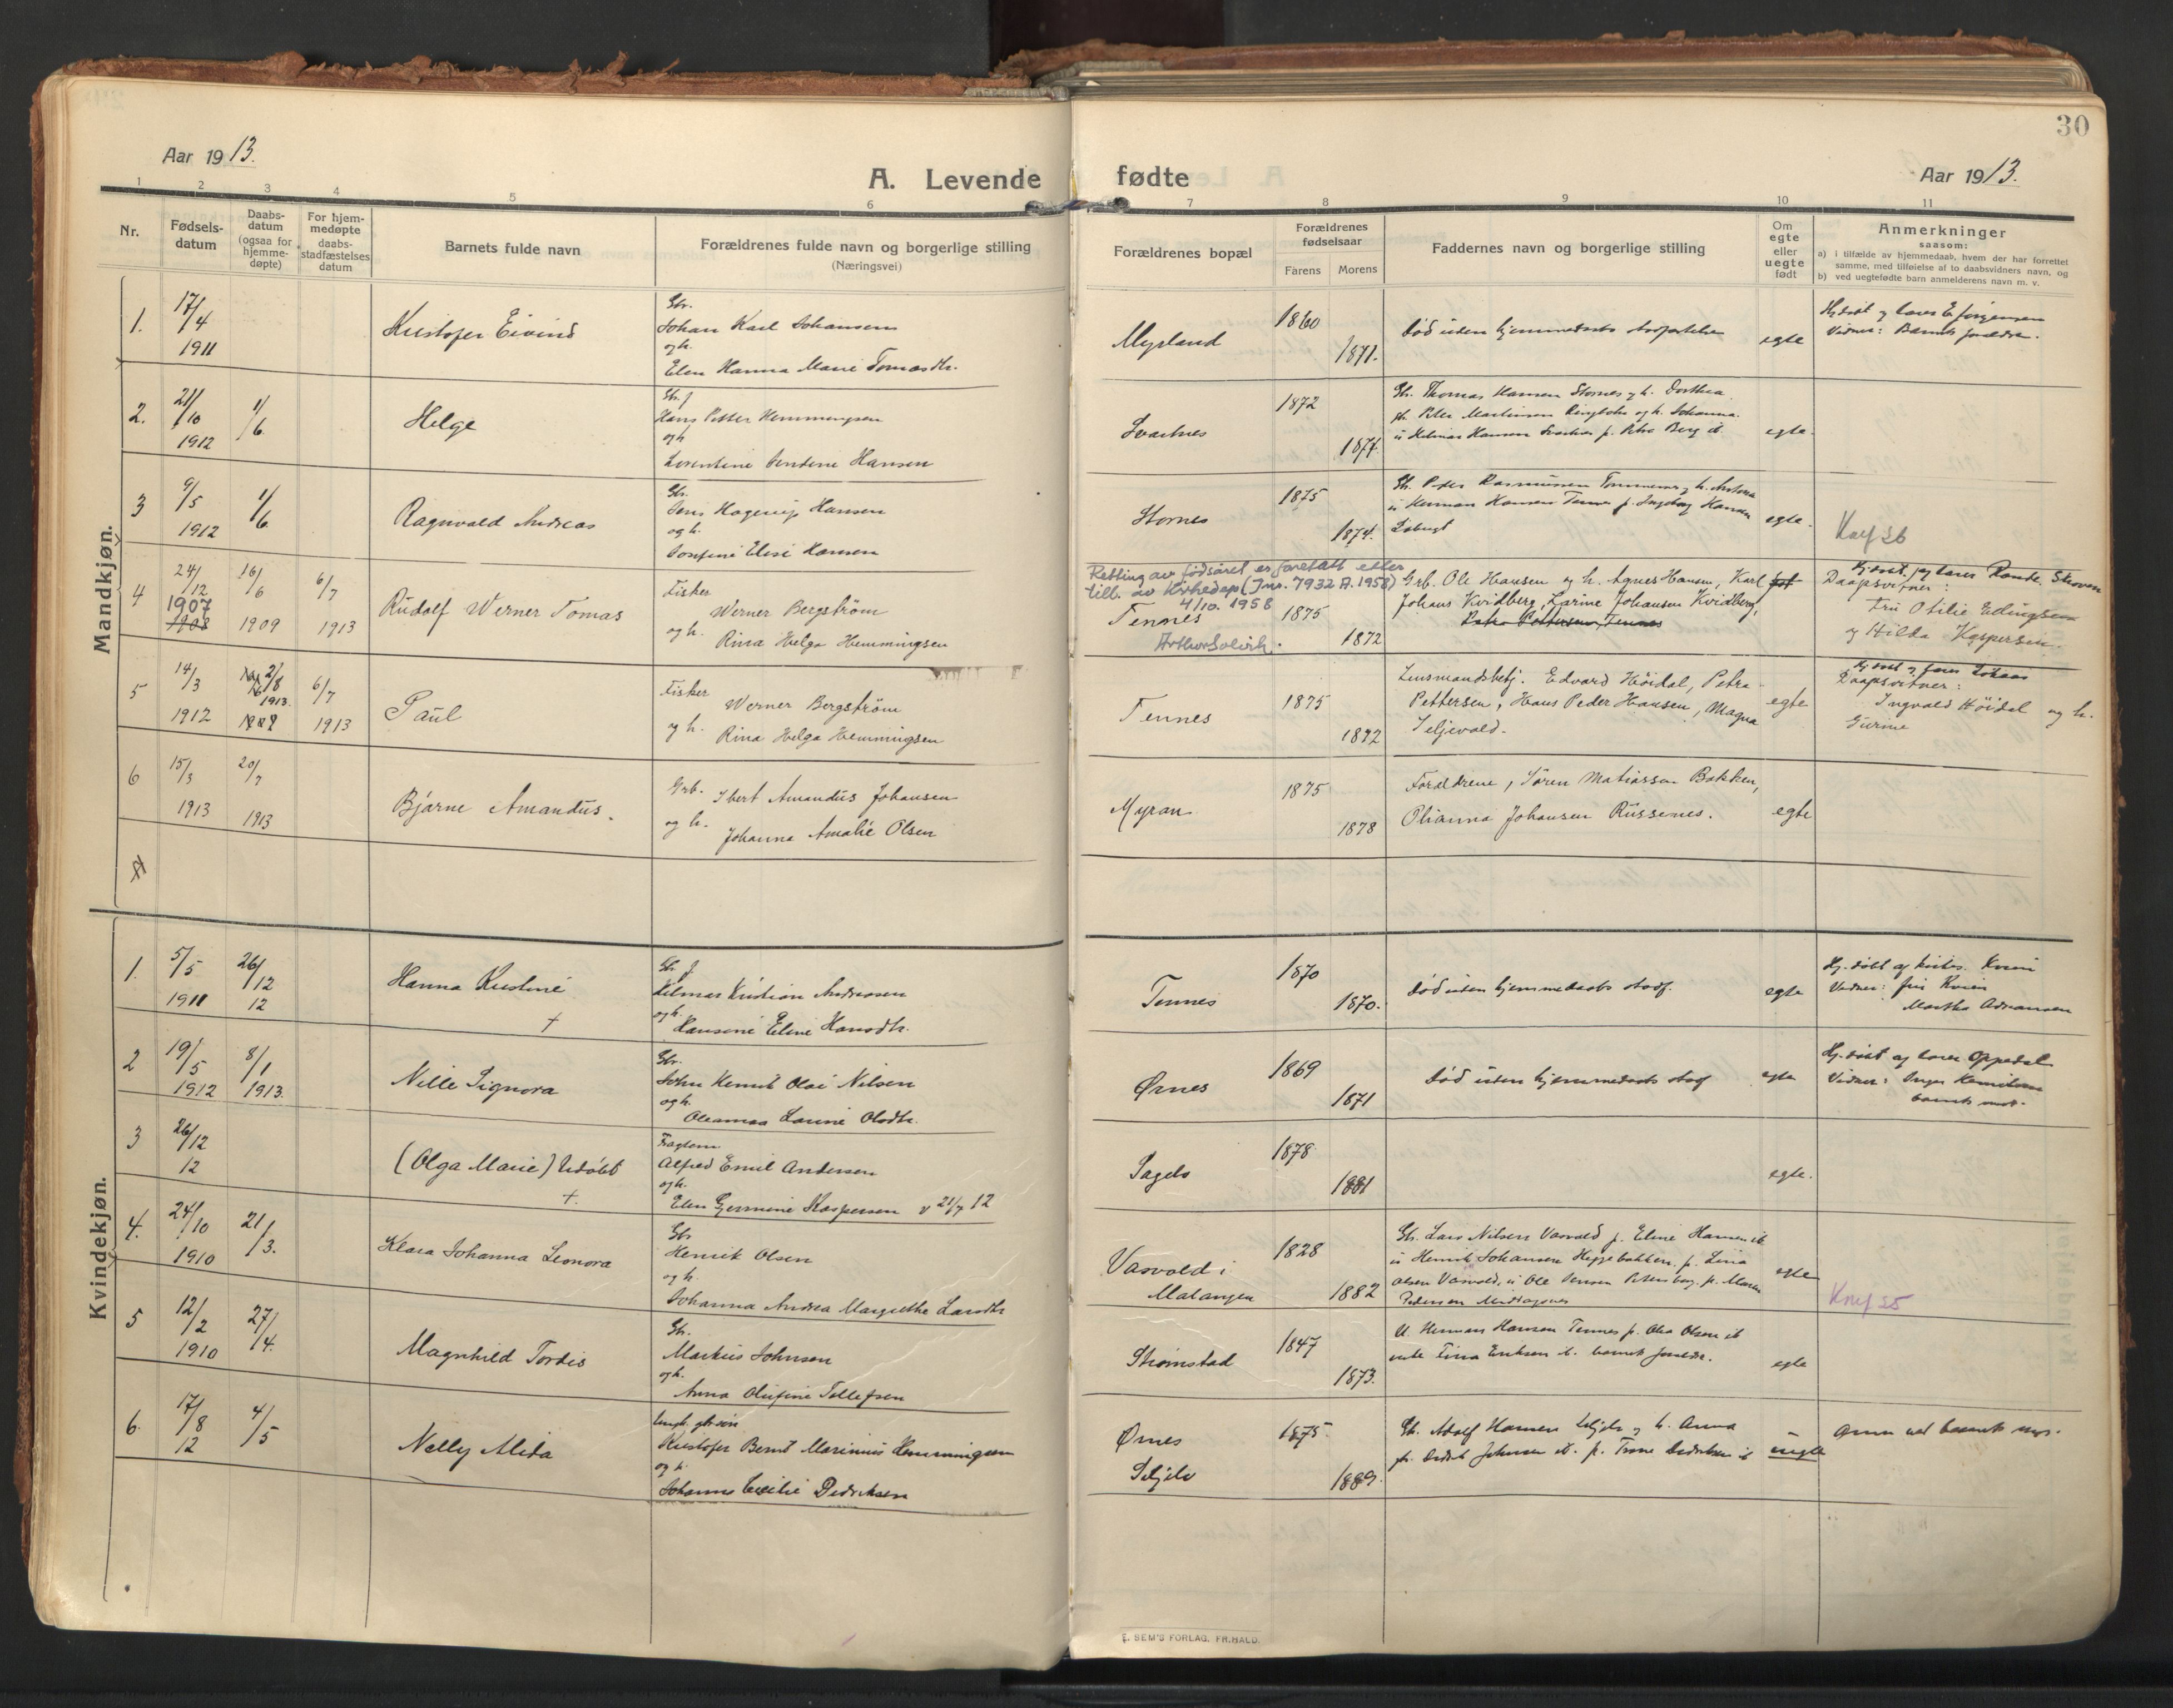 30
Aar 1913.
A. Levende fødte
Aar 1913.
1 2 3 4 5 6 7 8 9 10 11
Nr.
Fødsels-
datum
Daabs-
datum
(ogsaa for
hjemme-
døpte)
For hjem-
medøpte
daabs-
stadfæstelses
datum
Barnets fulde navn
Forældrenes fulde navn og borgerlige stilling
(Næringsvei)
Forældrenes bopæl
Forældrenes
fødselsaar
Farens Morens
Faddernes navn og borgerlige stilling
Om
egte
eller
uegte
født
Anmerkninger
saasom:
a) i tilfælde av hjemmedaab, hvem der har forrettet
samme, med tilføielse af to daabsvidners navn, og
b) ved uegtefødte barn anmelderens navn m. v.
Mandkjøn.
1.
17/4
1911
Kristofer Eivind
Gbr.
Johan Karl Johansen
og h.
Elen Hanna Marie Tomasdtr.
Myrland
1860
1871.
Død uden hjemmedaabs
egte
Hj.døbt af lærer E. Jørgensen
Vidner: Barnets forældre.
2.
21/10
1912
1/6
Helge
Hans Petter Hemmingsen
og h
Lorentine Jentine Hansen
Svartnes
1872
1877.
Gb. Thomas Hansen Stornes og h. Dorthea
gb. Peter Martinsen og h. Johanna
u Helmer Hansen Svartnes p. Petra Berg ib
egte.
3
9/5
1912
1/6
Ragnvald Andreas
Gbr.
Jens Hagerup Hansen
og h.
Josefine Elise Hansen
Stornes
1875
1874.
Gb. Peder Rasmussen og h. Antona
u Herman Hansen Tennes p. Ingeborg Hansen
egte.
4
24/12
1907
1908
16/6
1909
6/7
1913
Rudolf Werner Tomas
Fisker
Werner Bergström
og h. Rina Helga Hemmingsen
Retting av fødsåret er foretatt etter
till. av Kirkedep (Jnr. 7932 A. 1958)
4/10. 1958
Tennes
Arthur Solvik.
1875
1872
Grb. Ole Hansen og h. Agnes Hansen, Karl
Johans Kvidberg, Larine Johansen Kvidberg,
Petra Pettersen, Tennes
Hj.døbt. av lærer Rande, Skoven
Daapsvitner:
Fru Otilie Edingsen
og Hilda Kaspersen.
5
14/3
1912
2/8
1913.
6/7
1913
Paul
Fisker
Werner Bergström
og h. Rina Helga Hemmingsen
Tennes
1875
1872
Lensmandsbetj. Edvard Höidal, Petra
Pettersen, Hans Peder Hansen, Magna
Seljevold.
egte
Daapsvitner:
Ingvald Höidal og h.
Gurine
6
15/3
1913
20/7
1913
Bjarne Amandus.
Grb. Ibert Amandus Johansen
og h. Johanna Amalie Olsen
Myran
1875
1878
Forældrene, Sören Matiassen Bakken,
Olianna Johansen Russenes.
egte
Kvindekjøn.
1.
5/5
1911
26/12
12
Hanna Kristine
+
Hilmar Kristian Andreasen
og h.
Hansine Eline Hansdtr.
Tennes
1870
1870.
Død uden hjemmedaabs stadf.
egte
Hj. døbt af
Vidner: fru
Martha Adriansen
2
19/5
1912
8/1
1913.
Nille Signora
Gbr.
John Henrik Olai Nilsen
og h.
Oleanna Laurine Olsdtr.
Ørnes
1869
1871
Død uden hjemmedaabs stadf
egte
Hj. døbt af lærer Oppedal
Vidner: Inger
barnets mor.
3
26/12
12
(Olga Marie) Udøbt
+.
Alfred Emil Andersen
og h.
Elen Germine Kaspersen v 21/7 12
Sagelv
1878
1881
egte.
4.
24/10
1910
21/3.
Klara Johanna Leonora
Gbr
Henrik Olsen
og h.
Johanna Andrea Margrethe Larsdtr
Vasvold i
Malangen
1828
1882
Gb. Lars Nilsen Vasvold p. Eline Hansen ib
u Henrik Johansen Heggebakken, p. Lina
Olsen Vasvold, u Ole Jensen p. Maren
Pedersen
egte
5
12/2
1910
27/
14.
Magnhild Tordis
Gb.
Markus Johnsen
og h.
Anna Olufine Tollefsen
Strømstad
1847
1873.
U. Herman Hansen Tennes p. Olea Olsen ib
enke Tina Eriksen ib. barnets forældre.
egte
6.
17/8
12
4/5
Nelly Alida
Kristofer Bernt Marinius Hemmingsen
og p.
Johanna Cecilie Dedriksen
Ørnes
Seljelv
1875.
1889.
Gb. Adolf Hansen Seljelv og h. Anna
gb. Johnsen ib. p. Trine Dedriksen ib
uegte
Anm ved barnets mor.
E. SEM'S FORLAG. FR.HALD.